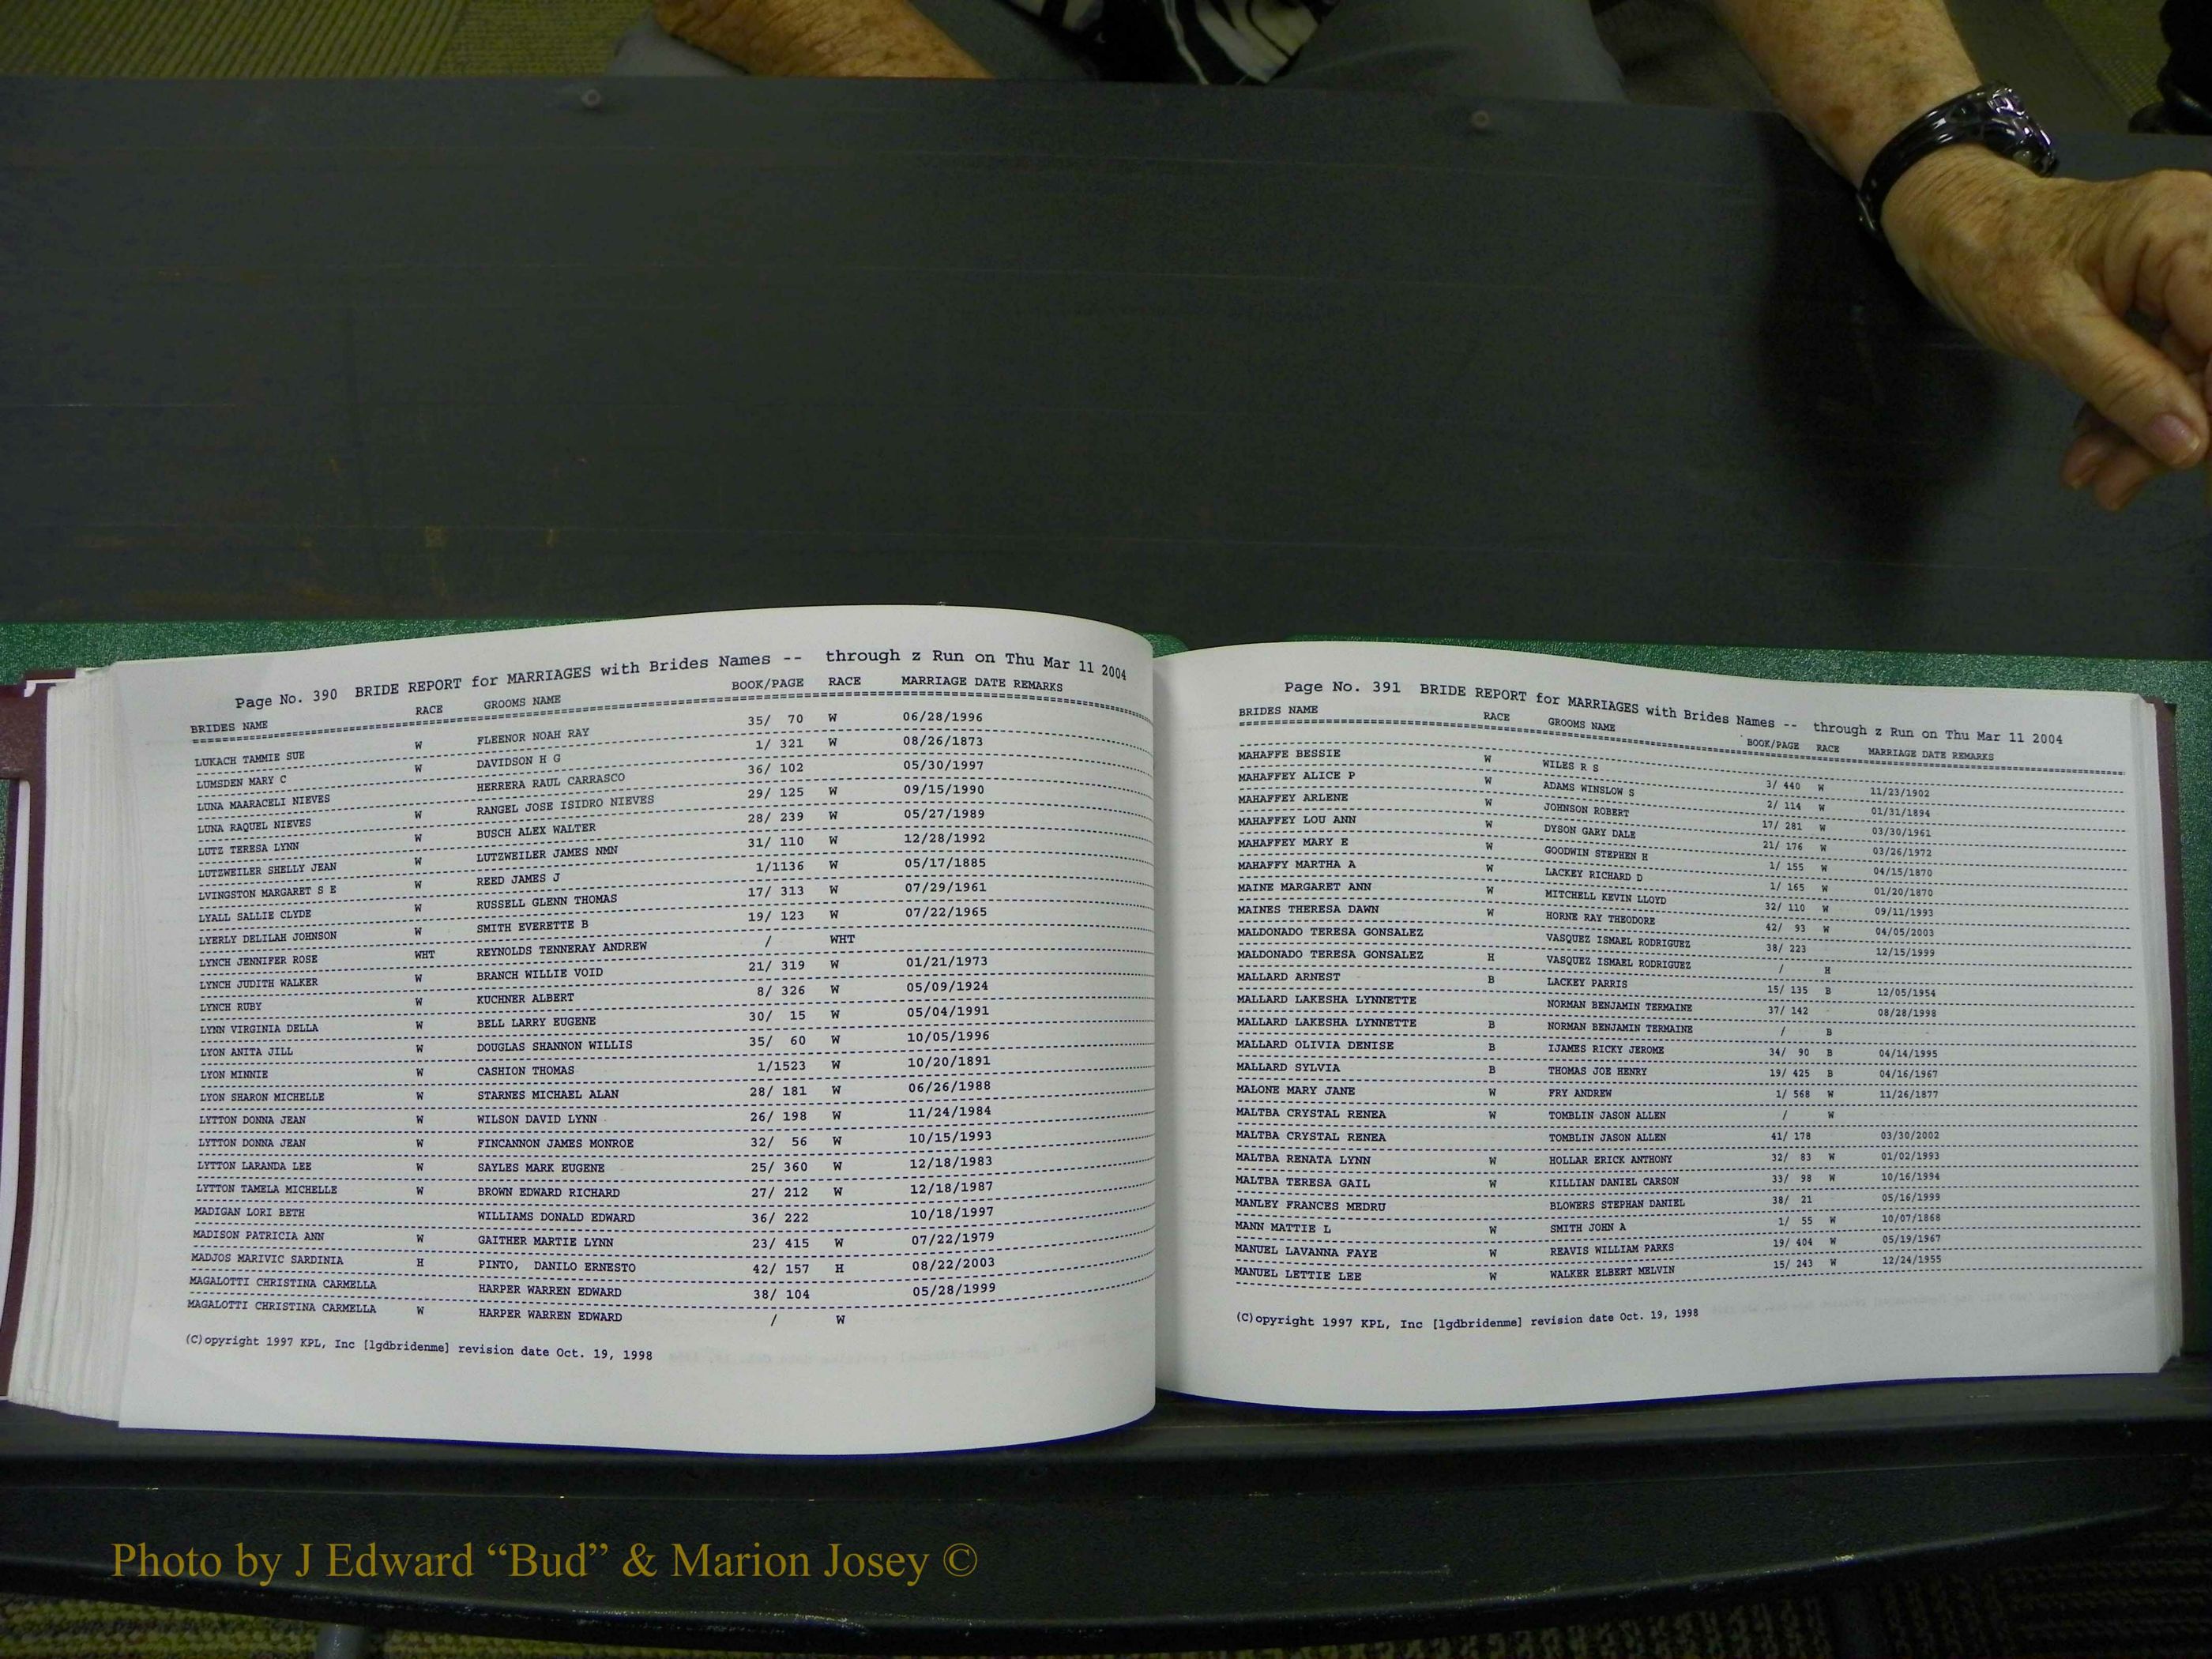 Page No. 390 BRIDE REPORT for MARRIAGES with Brides Names -- through z Run on Thu Mar 11 2004
BRIDES NAME RACE GROOMS NAME BOOK/PAGE RACE MARRIAGE DATE REMARKS
LUKACH TAMMIE SUE W FLEENOR NOAH RAY 35/ 70 W 06/28/1996
LUMSDEN MARY C W DAVIDSON H G 1/ 321 W 08/26/1873
LUNA MAARACELI NIEVES HERRERA RAUL CARRASCO 36/ 102 05/30/1997
LUNA RAQUEL NIEVES W RANGEL JOSE ISIDRO NIEVES 29/ 125 W 09/15/1990
LUTZ TERESA LYNN W BUSCH ALEX WALTER 28/ 239 W 05/27/1989
LUTZWEILER SHELLY JEAN W LUTZWEILER JAMES NMN 31/ 110 W 12/28/1992
LVINGSTON MARGARET S E W REED JAMES J 1/1136 W 05/17/1885
LYALL SALLIE CLYDE W RUSSELL GLENN THOMAS 17/ 313 W 07/29/1961
LYERLY DELILAH JOHNSON W SMITH EVERETTE B 19/ 123 W 07/22/1965
LYNCH JENNIFER ROSE WHT REYNOLDS TENNERAY ANDREW / WHT
LYNCH JUDITH WALKER W BRANCH WILLIE VOID 21/ 319 W 01/21/1973
LYNCH RUBY W KUCHNER ALBERT 8/ 326 W 05/09/1924
LYNN VIRGINIA DELLA W BELL LARRY EUGENE 30/ 15 W 05/04/1991
LYON ANITA JILL W DOUGLAS SHANNON WILLIS 35/ 60 W 10/05/1996
LYON MINNIE W CASHION THOMAS 1/1523 W 10/20/1891
LYON SHARON MICHELLE W STARNES MICHAEL ALAN 28/ 181 W 06/26/1988
LYTTON DONNA JEAN W WILSON DAVID LYNN 26/ 198 W 11/24/1984
LYTTON DONNA JEAN W FINCANNON JAMES MONROE 32/ 56 W 10/15/1993
LYTTON LARANDA LEE W SAYLES MARK EUGENE 25/ 360 W 12/18/1983
LYTTON TAMELA MICHELLE W BROWN EDWARD RICHARD 27/ 212 W 12/18/1987
MADIGAN LORI BETH WILLIAMS DONALD EDWARD 36/ 222 10/18/1997
MADISON PATRICIA ANN W GAITHER MARTIE LYNN 23/ 415 W 07/22/1979
MADJOS MARIVIC SARDINIA H PINTO, DANILO ERNESTO 42/ 157 H 08/22/2003
MAGALOTTI CHRISTINA CARMELLA HARPER WARREN EDWARD 38/ 104 05/28/1999
MAGALOTTI CHRISTINA CARMELLA W HARPER WARREN EDWARD / W
(C)opyright 1997 KPL, Inc [lgdbridenme] revision date Oct. 19, 1998
Page No. 391 BRIDE REPORT for MARRIAGES with Brides Names -- through z Run on Thu Mar 11 2004
BRIDES NAME RACE GROOMS NAME BOOK/PAGE RACE MARRIAGE DATE REMARKS
MAHAFFE BESSIE W WILES R S 3/ 440 W 11/23/1902
MAHAFFEY ALICE P W ADAMS WINSLOW S 2/ 114 W 01/31/1894
MAHAFFEY ARLENE W JOHNSON ROBERT 17/ 281 W 03/30/1961
MAHAFFEY LOU ANN W DYSON GARY DALE 21/ 176 W 03/26/1972
MAHAFFEY MARY E W GOODWIN STEPHEN H 1/ 155 W 04/15/1870
MAHAFFY MARTHA A W LACKEY RICHARD D 1/ 165 W 01/20/1870
MAINE MARGARET ANN W MITCHELL KEVIN LLOYD 32/ 110 W 09/11/1993
MAINES THERESA DAWN W HORNE RAY THEODORE 42/ 93 W 04/05/2003
MALDONADO TERESA GONSALEZ VASQUEZ ISMAEL RODRIGUEZ 38/ 223 12/15/1999
MALDONADO TERESA GONSALEZ H VASQUEZ ISMAEL RODRIGUEZ / H
MALLARD ARNEST B LACKEY PARRIS 15/ 135 B 12/05/1954
MALLARD LAKESHA LYNNETTE NORMAN BENJAMIN TERMAINE 37/ 142 08/28/1998
MALLARD LAKESHA LYNNETTE B NORMAN BENJAMIN TERMAINE / B
MALLARD OLIVIA DENISE B IJAMES RICKY JEROME 34/ 90 B 04/14/1995
MALLARD SYLVIA B THOMAS JOE HENRY 19/ 425 B 04/16/1967
MALONE MARY JANE W FRY ANDREW 1/ 568 W 11/26/1877
MALTBA CRYSTAL RENEA W TOMBLIN JASON ALLEN / W
MALTBA CRYSTAL RENEA TOMBLIN JASON ALLEN 41/ 178 03/30/2002
MALTBA RENATA LYNN W HOLLAR ERICK ANTHONY 32/ 83 W 01/02/1993
MALTBA TERESA GAIL W KILLIAN DANIEL CARSON 33/ 98 W 10/16/1994
MANLEY FRANCES MEDRU BLOWERS STEPHAN DANIEL 38/ 21 05/16/1999
MANN MATTIE L W SMITH JOHN A 1/ 55 W 10/07/1868
MANUEL LAVANNA FAYE W REAVIS WILLIAM PARKS 19/ 404 W 05/19/1967
MANUEL LETTIE LEE W WALKER ELBERT MELVIN 15/ 243 W 12/24/1955
(C)opyright 1997 KPL, Inc [lgdbridenme] revision date Oct. 19, 1998
Photo by J Edward “Bud” & Marion Josey ©